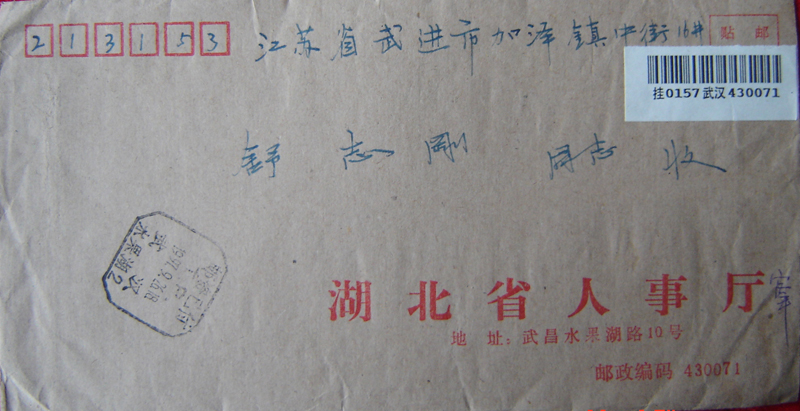 213153
江苏省武进市加泽镇中街16#
贴 邮
挂0157 武汉 430071
舒志刚 同志 收
武汉
水果湖2
邮资已付
湖北省人事厅
地 址:武昌水果湖路10号
邮政编码 430071